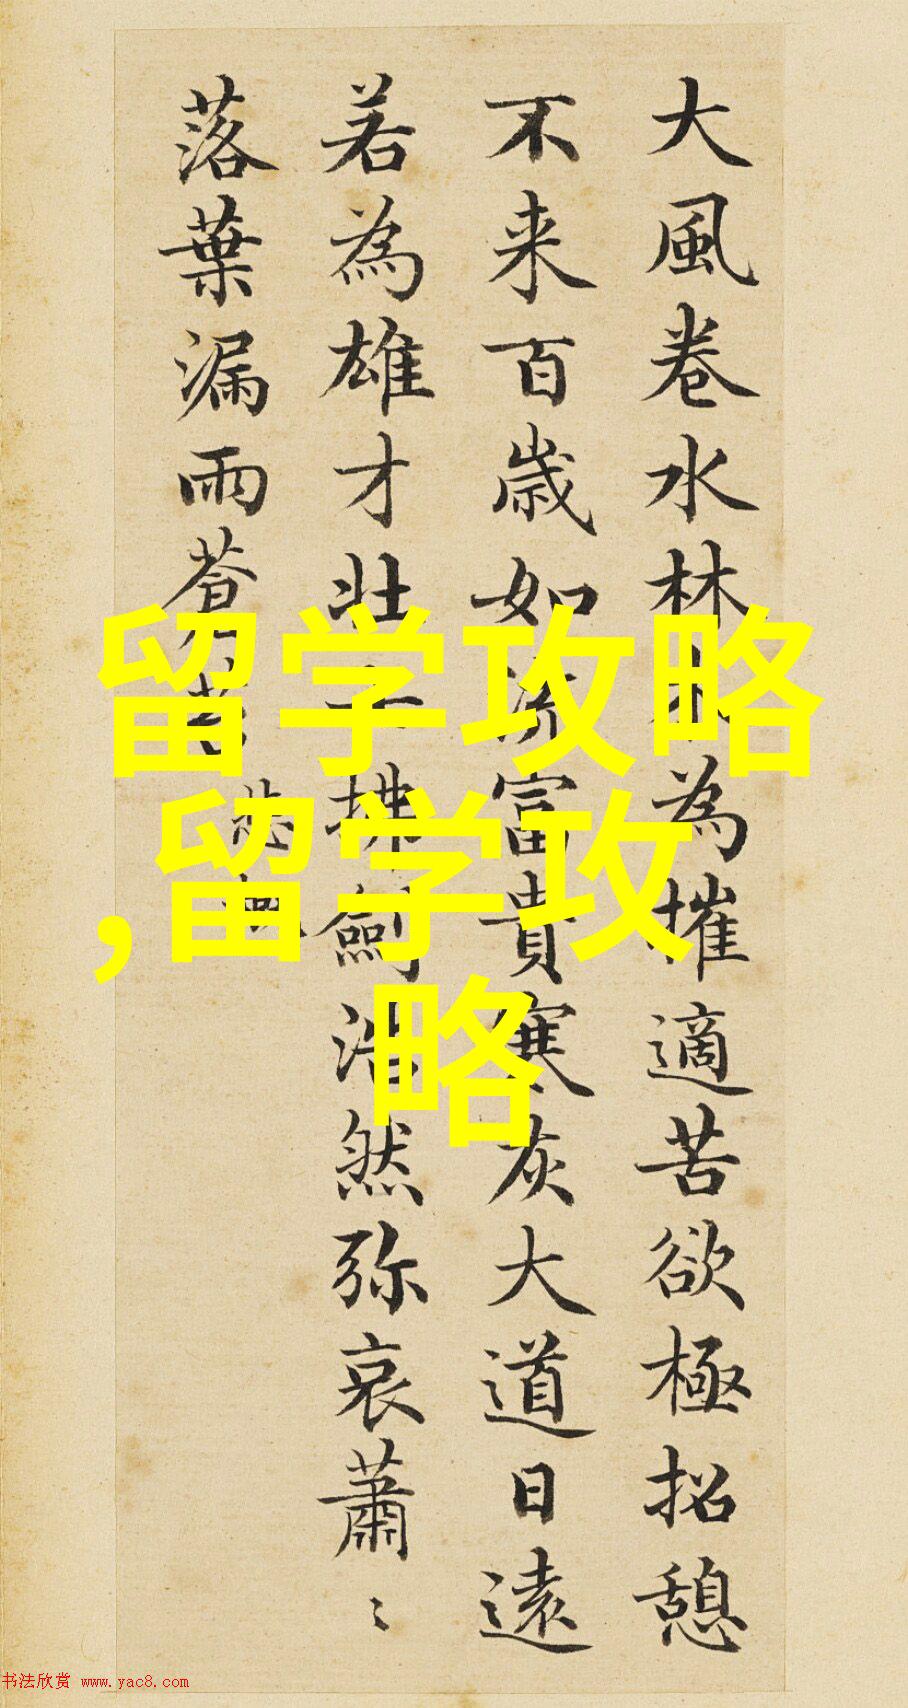 大風卷水林木為摧適苦欲極招憩
不来百歳如流富貴寒灰大道日遠
若為雄才壯拂劍浩然弥哀蕭〻
落葉漏雨蒼
留学攻略
,留学攻
略
书法欣赏 www.yac8.com